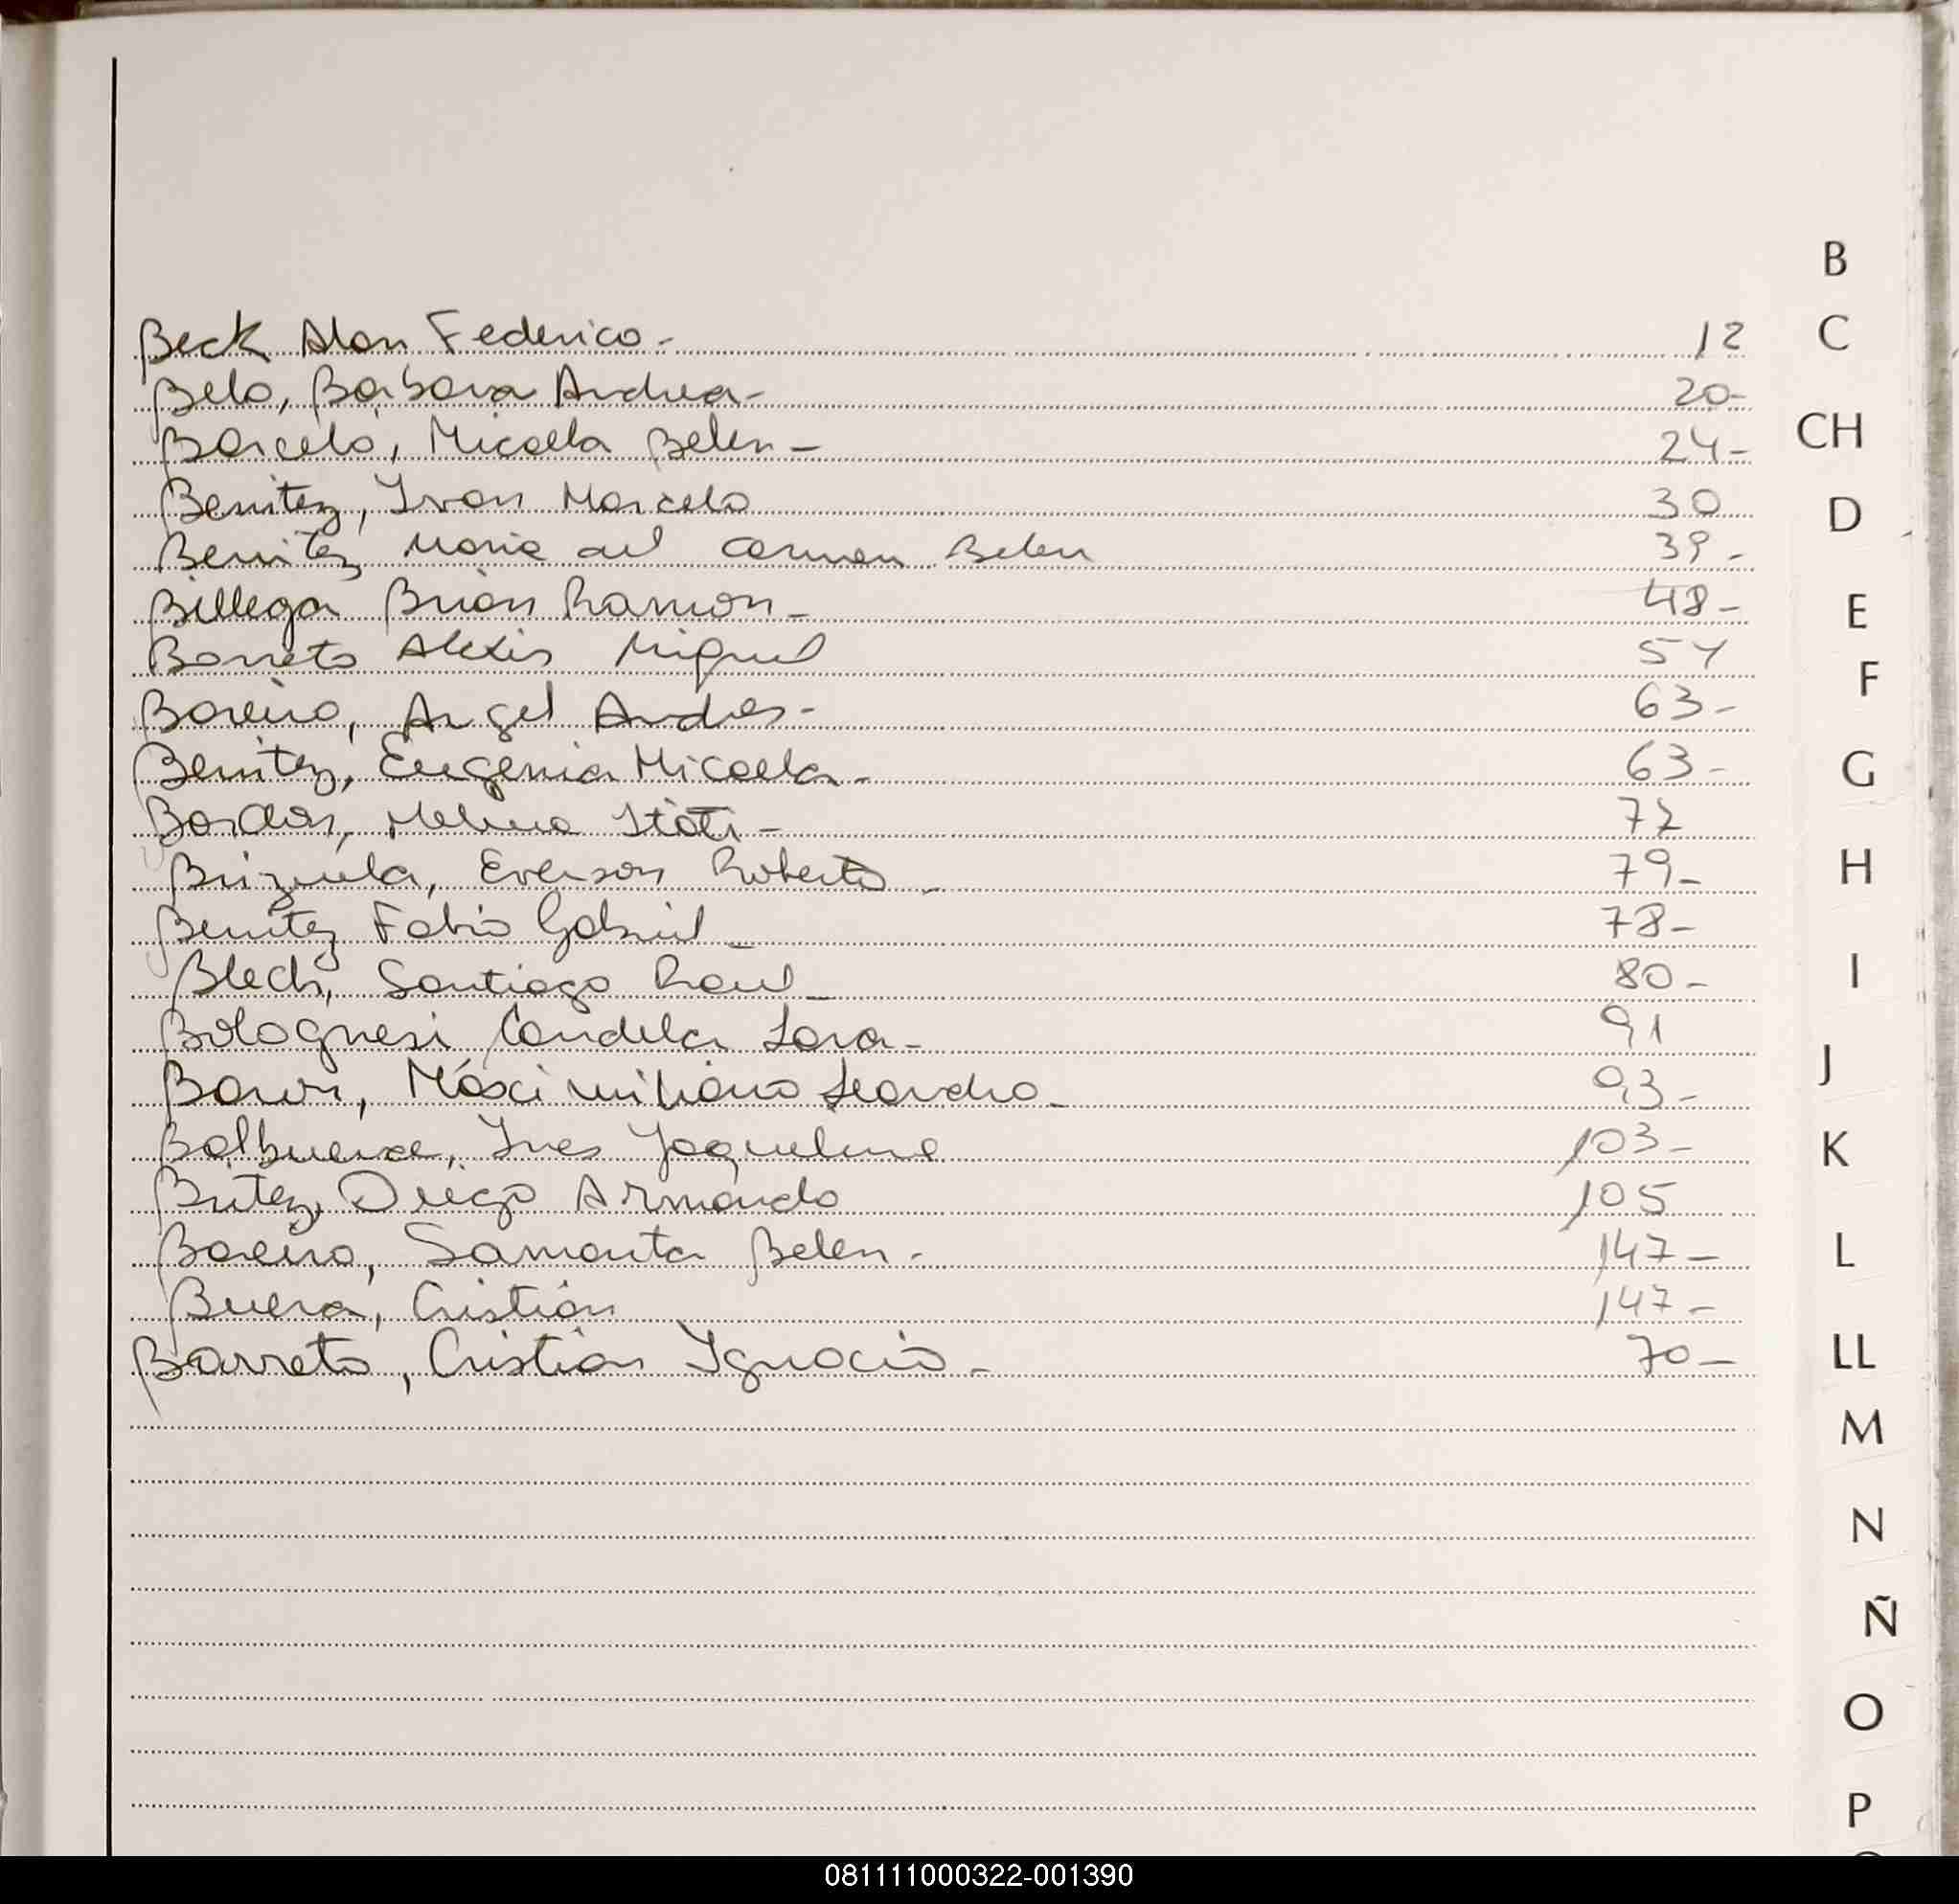 B
Beck Alan Federico - 12
C
Belo, Bárbara Andrea - 20 -
Barcelo, Micaela Belen - 24 -
CH
Benitez, Ivan Marcelo 30
D
Benitez Maria del Carmen Belen 39 -
Billega Brian Ramon - 48 -
E
Barreto Alexis Miguel 54
F
Bareiro, Angel Andres - 63 -
Benitez, Eugenia Micaela - 63 -
G
Melina Itati - 72
Brizuela, Everson Roberto - 79 -
H
Benitez Fabio Gabriel - 78 -
Blech, Santiago Raul - 80 -
I
Bolognesi Candela Lara - 91
J
Máximiliano Leandro - 93 -
Balbuena, Ines Jaqueline 103 -
K
Britez, Diego Armando 105
Bareiro, Samanta Belen - 147 -
L
Buera, Cristián 147 -
Barreto, Cristian Ignacio - 70 -
LL
M
N
Ñ
O
P
081111000322-001390